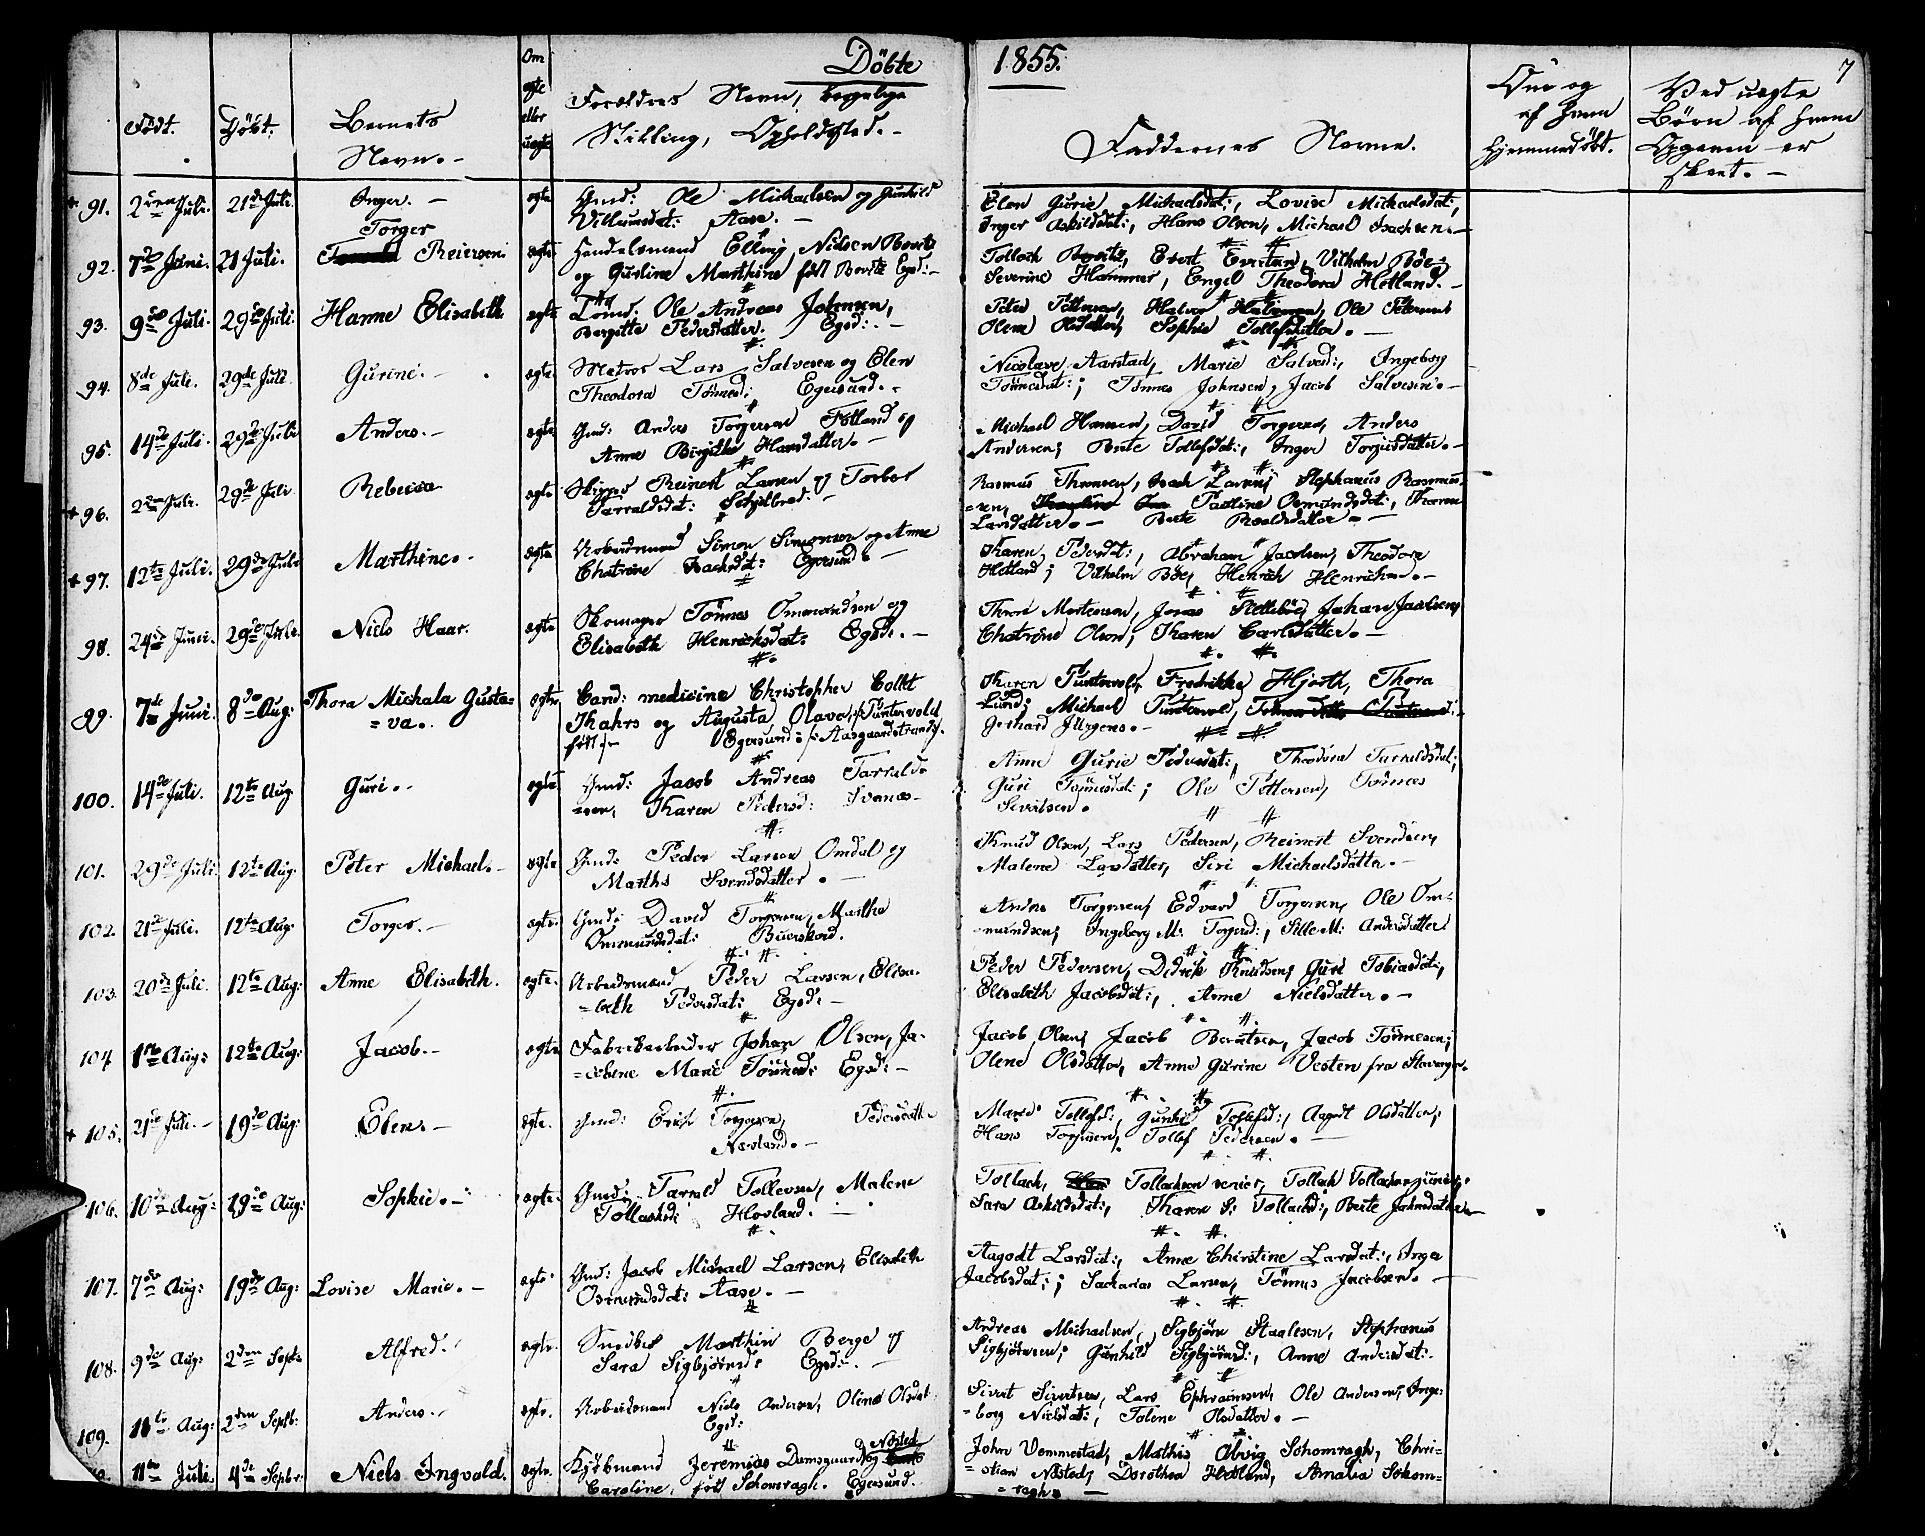 Döbte 1855. 7
Födt. Döbt. Barnets Navn.- Om egte eller uegte Forældres Navn, borgerlige Stilling, Opholdssted.- Faddernes Navne. Naar og af hvem hjemmedöbt. Ved uegte Börn af hvem Opgaven er skeet.-
+ 91. 2den Juli. 21de Juli. Inger.- egte Gmd: Ole Michaelsen og Gunhild
Villumsdat: Aase.-
Elen Gurie Michaelsdat:, Lovise Michaelsdat:,
Inger Askildsdat:, Hans Olsen, Michael Isachsen.-
92. 7de Juni. 21 Juli. Torger Reiersen egte Handelsmand Elling Nielsen Bovitz
og Gurline Marthine född Bovitz Egsd:-
Tollach Bovitz, Evert Evertsen, Vilhelm Böe,
Severine Hammer, Engel Theodora Hetland.-
93. 9de Juli. 29de Juli. Hanne Elisabeth egte Lomd: Ole Andreas Johnsen,
Bergitte Pedersdatter. Egsd:.-
Peter Pettersen, Halvor Halvorsen, Ole Petersen,
Olene Olsdatter, Sophie Tollefsdatter.-
94. 8de Juli. 29de Juli. Gurine.- egte. Matros Lars Salvesen og Elen
Theodora Tönnesd: Egersund.-
Nicolave Aarstad, Marie Salvesd:, Ingeborg
Tönnesdat:; Tönnes Johnsen, Jacob Salvesen.-
95. 14de Juli. 29de Juli Anders.- egte Gmd: Anders Torgersen Folland og
Anne Birgitte Hansdatter.-
Michael Hansen, David Torgersen, Anders
Andersen; Berte Tollefsdat:, Inger Torgersdatter.-
+ 96. 2den Juli. 29de Juli Rebecca egte Skipper Reinert Larsen og Torbor
Tarraldsdat:
Rasmus Thomsen, Isach Larsen; Stephanus Rasmus-
=sen, Pauline Osmundsdat:, Karen
Larsdatter.- Berte Roaldsdatter.-
+ 97. 12te Juli. 29de Juli Marthine.- egte Arbeidsmand Simon Simonsen og Anne
Chatrine Isachsdat: Egersund.-
Karen Pedersdat:, Abraham Jacobsen, Theodore
Hetland; Vilhelm Böe, Henrich Henrichsen.-
98. 24de Juni. 29de Juli. Niels Haar. egte Skomager Tönnes Ommundsen og
Elisabeth Henrichsdat: Egsd:.-
Thore Mortensen, Jonas Stelleböe, Johan Jacobsen,
Chatrine Olsen, Karen Carlsdatter.-
99. 7de Juni. 8de Aug: Thora Michala Gusta-
=va.. egte Cand: medicine Christopher Collet
Kahrs og Augusta Olava Puntervold
född.- Egersund :/: Aasgaardstrand/.
Karen Puntervold, Fredrikke Hjorth, Thora
Lund; Michael Puntervold,
Gerhard Jürgens.-
100. 14de Juli. 12te Aug. Guri.. egte Gmd: Jacob Andreas Tarrald-
=sen, Karen Pedersd: Svanes-
Anne Gurie Pedersdat:, Theodora Tarraldsdat:,
Guri Tönnesdat:; Ole Pettersen, Tönnes
Sivertsen.
101. 29de Juli. 12te Aug: Peter Michael.- egte Gmd: Peder Larsen Omdal og
Marthe Svendsdatter.-
Knud Olsen, Lars Pedersen, Reinert Svendsen,
Malene Larsdatter, Siri Michaelsdatter.-
102. 21de Juli. 12te Aug: Torger.- egte. Gmd: David Torgersen, Marthe
Ommundsdat: Buerstad.
Anders Torgersen, Edvard Torgersen, Ole Om-
mundsen; Ingeborg M: Torgersd:, Sille M: Andersdatter
103. 20de Juli. 12te Aug: Anne Elisabeth. egte. Arbeidsmand Peder Larsen, Elisa-
=beth Pedersdat: Egsd:-
Peder Pedersen, Didrik Knudsen; Guri Tobiasdat:,
Elisabeth Jacobsdat:, Anne Nielsdatter.-
104 1ste Aug: 12te Aug: Jacob.- egte Fabrikarbeider Johan Olsen, Ja-
=cobine Marie Tönnesd: Egsd:-
Jacob Olsen, Jacob Berntsen, Jacob Tönnesen;
Olene Olsdatter, Anne Gurine Vesten fra Stavanger.
+ 105. 21de Juli.- 19de Aug: Elen.- egte. Gmd: Erich Torgersen, Pedersdatt.
Netland.-
Maren Tollefsd:, Gunhild Tollefsd:, Aagodt Olsdatter;
Hans Torgersen, Tollef Pedersen.-
106. 10de Aug: 19de Aug: Sophie.- egte. Gmd: Tarrald Tollevsen, Malene
Tollachsd: Hovland.-
Tollach Tollachsen senior, Tollach Tollachsen junior,
Sara Askildsdat:, Karen S: Tollachsd:, Berte Johnsdatter.-
107. 7de Aug: 19de Aug: Lovise Marie.- egte. Gmd: Jacob Michael Larsen, Elisabeth
Osmundsdat: Aase.-
Aagodt Larsdat:, Anne Christine Larsdat:, Inger
Jacobsdat:; Zacharias Larsen, Tönnes Jacobsen.-
108. 9de Aug: 2den Septb: Alfred.- egte. Snedker Marthin Berge og
Sara Sigbjörnsd: Egsd:.-
Andreas Michaelsen, Sigbjörn Staalesen, Stephanus
Sigbjörnsen; Gunhild Sigbjörnsd:, Anne Andersdat:.
109. 11te Aug: 2den Septb: Anders.- egte. Arbeidsmand Niels Andersen, Oline Olsdat:
Egsd:
Sivert Sivertsen, Lars Ephraimsen, Ole Andersen, Inge-
=borg Nielsdat:, Tolene Olsdatter.-
11te Juli. 4de Septbr: Niels Ingvald. egte. Kjöbmand Jeremias Damsgaard Nösted og
Caroline, född Schomragh. Egersund.
John Vemmestad, Mathis Abvig Schomragh, Chri-
=stian Nösted; Dorothea Hetland, Amalia Schom-
=ragh.-